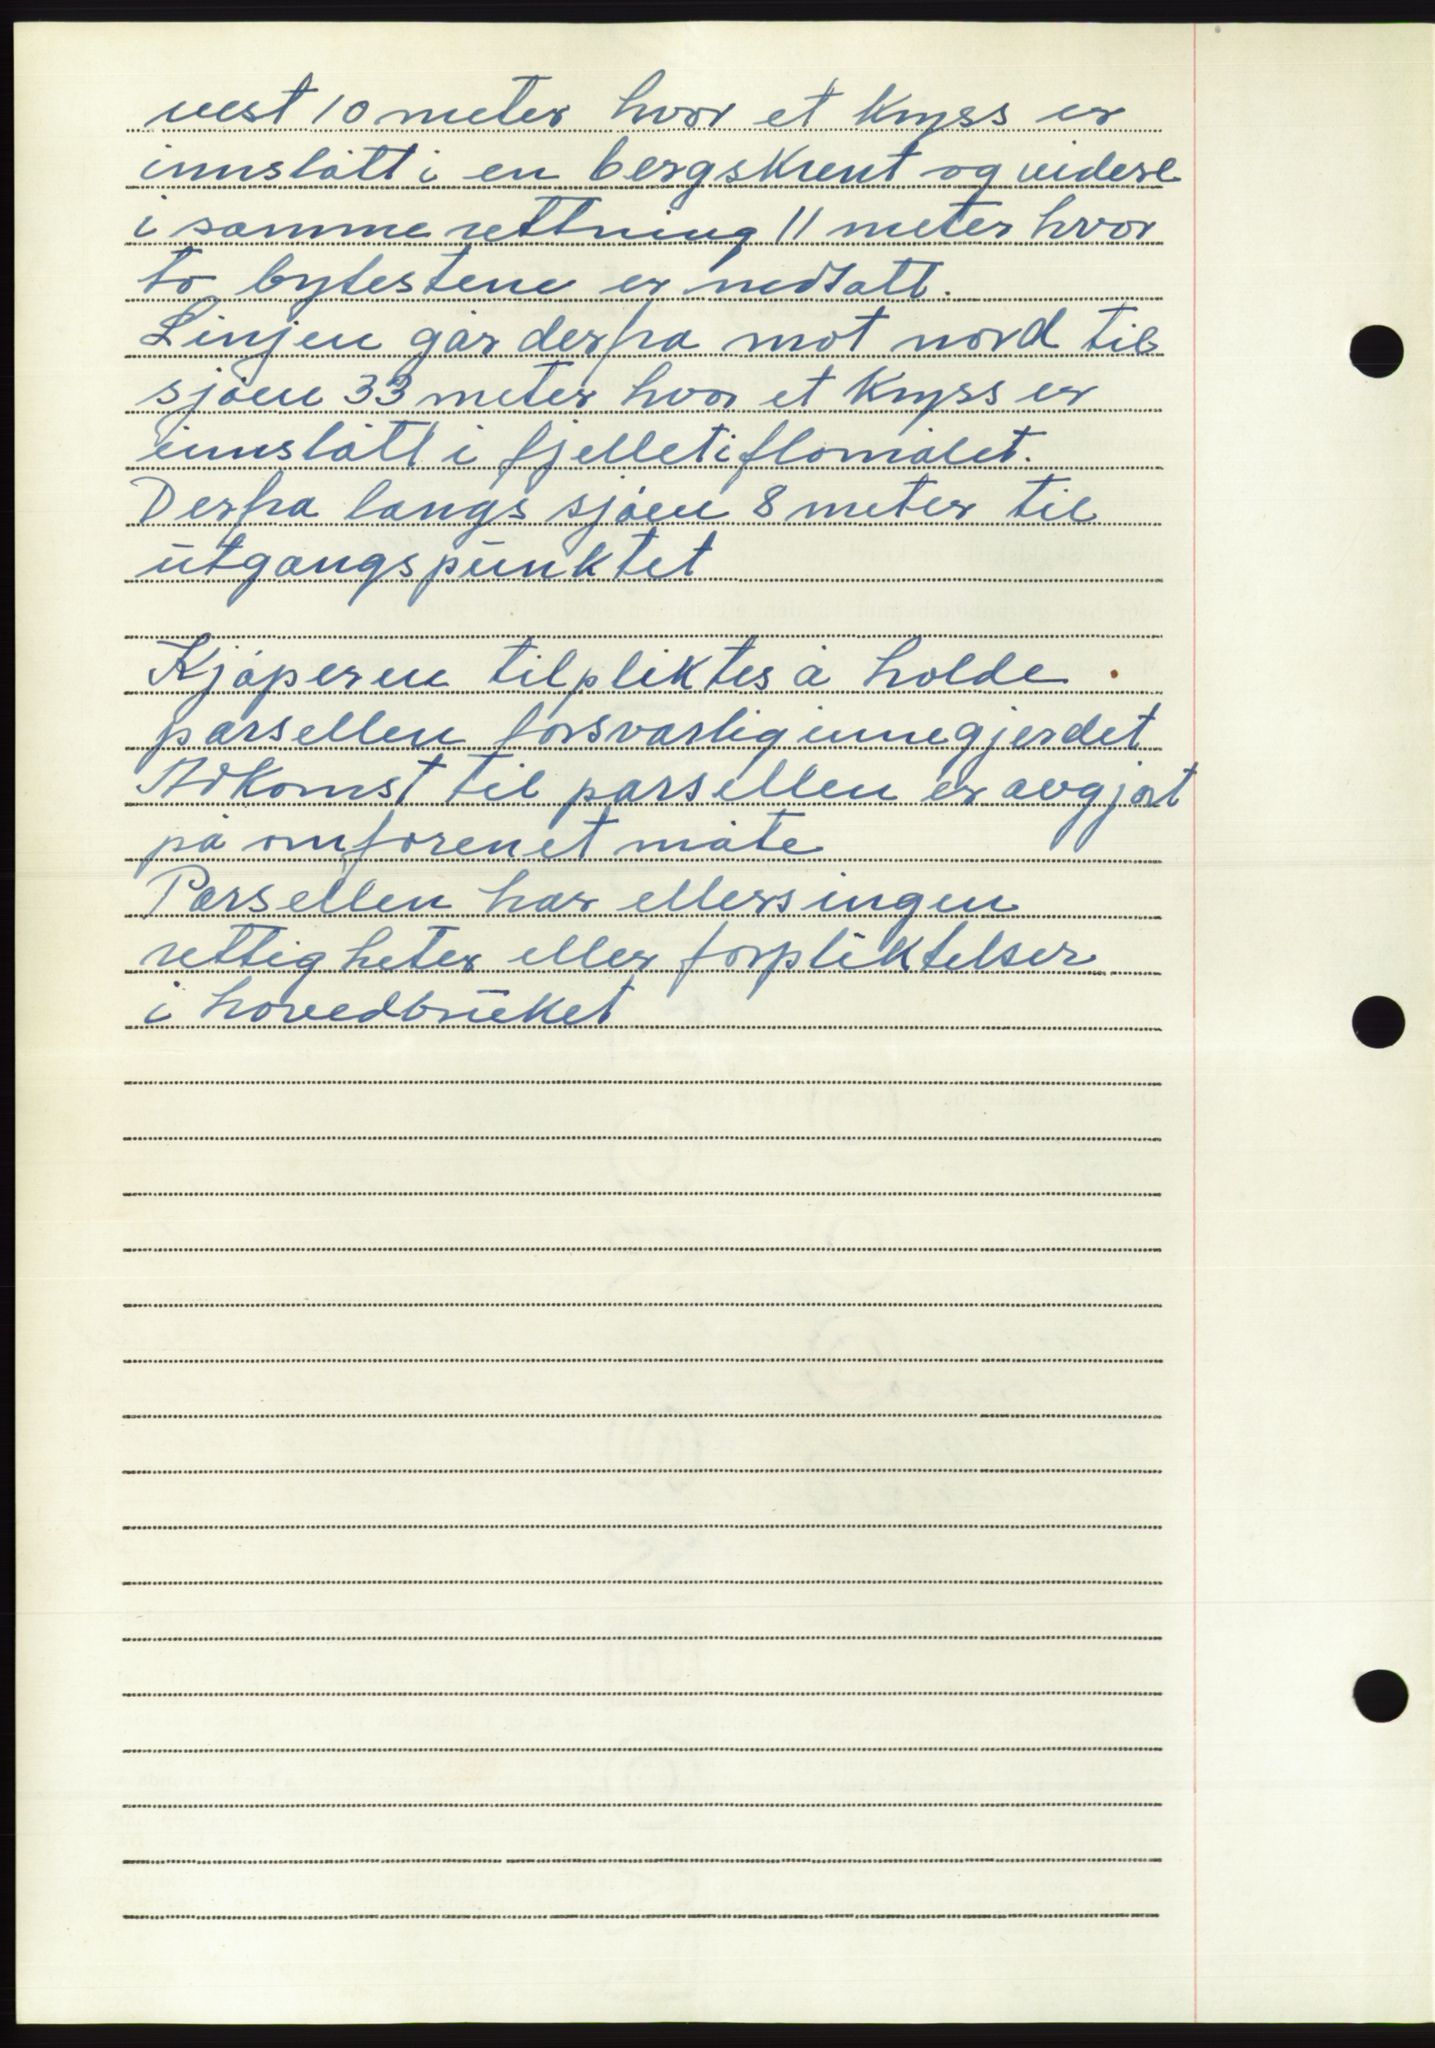 vest 10 meter hvor et kryss er
innslått i en bergskrent og videre
i samme rettning 11 meter hvor
to bytestene er nedsatt.
Linjen går derfra mot nord til
sjøen 33 meter hvor et kryss er
innslått i fjellet i flomålet.
Derfra langs sjøen 8 meter til
utgangspunktet
Kjøperen tilpliktes å holde
parsellen forsvarlig innegjerdet
Adkomst til parsellen er avgjort
på omforenet måte
Parsellen har ellers ingen
rettigheter eller forpliktelser
i hovedbruket